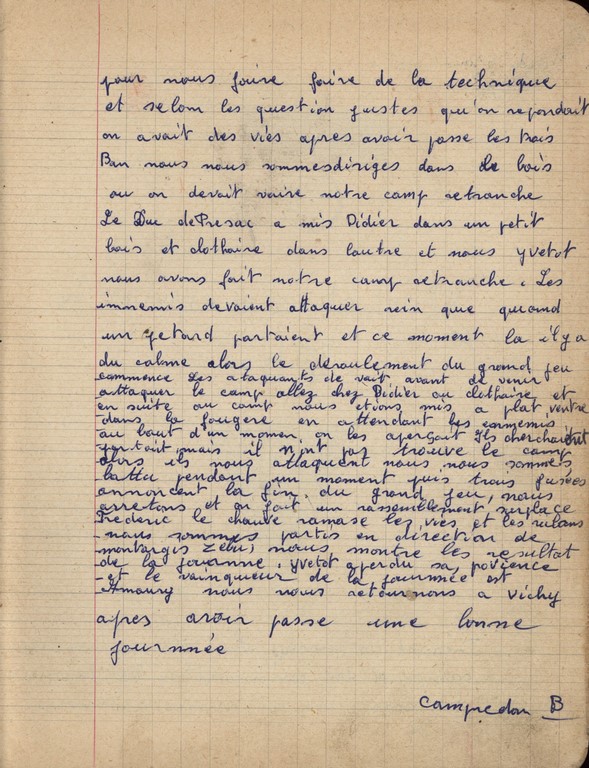 pour nous faire faire de la technique
et selom les question justes qu'on repondait
on avait des vies apres avoir passe les trois
Ban nous nous sommesdirigés dans de bois
ou on devait vaire notre camp retranche
Le Duc dePresac a mis Didier dans un petit
bois et clothaire dans lautre et nous yvetot
nous avons fait notre camp retranche. Les
innemis devaient attaquer rein que quand
un petard partaient et ce moment la il y a
du calme alors le déroulement du grand jeu
commence Les ataquants de vait avant de venir
attaquer le camp allez chez Didier ou clothaire et
en suite au camp nous etions mis a plat ventre
dans la fougere en attendant les ennemies
au bout d'un momen, on les aperçoit Ils cherchaient
partout mais il n'ont pas trouve le camp
alors ils nous attaquent nous nous sommes
battu pendant un moment puis trois fusées
annoncent la fin du grand jeu, nous
arretons et on fait un rassemblement surplace
Frederic le chauve ramase les vies et les rubans
nous sommes partis en direction de
montargis Zébu, nous montre les resultat
de la journne, yvetot a perdu sa povience
et le vainqueur de la journnée est
Amaury nous nous retournons a vichy
apres avoir passe une bonne
journnée
Campredon B